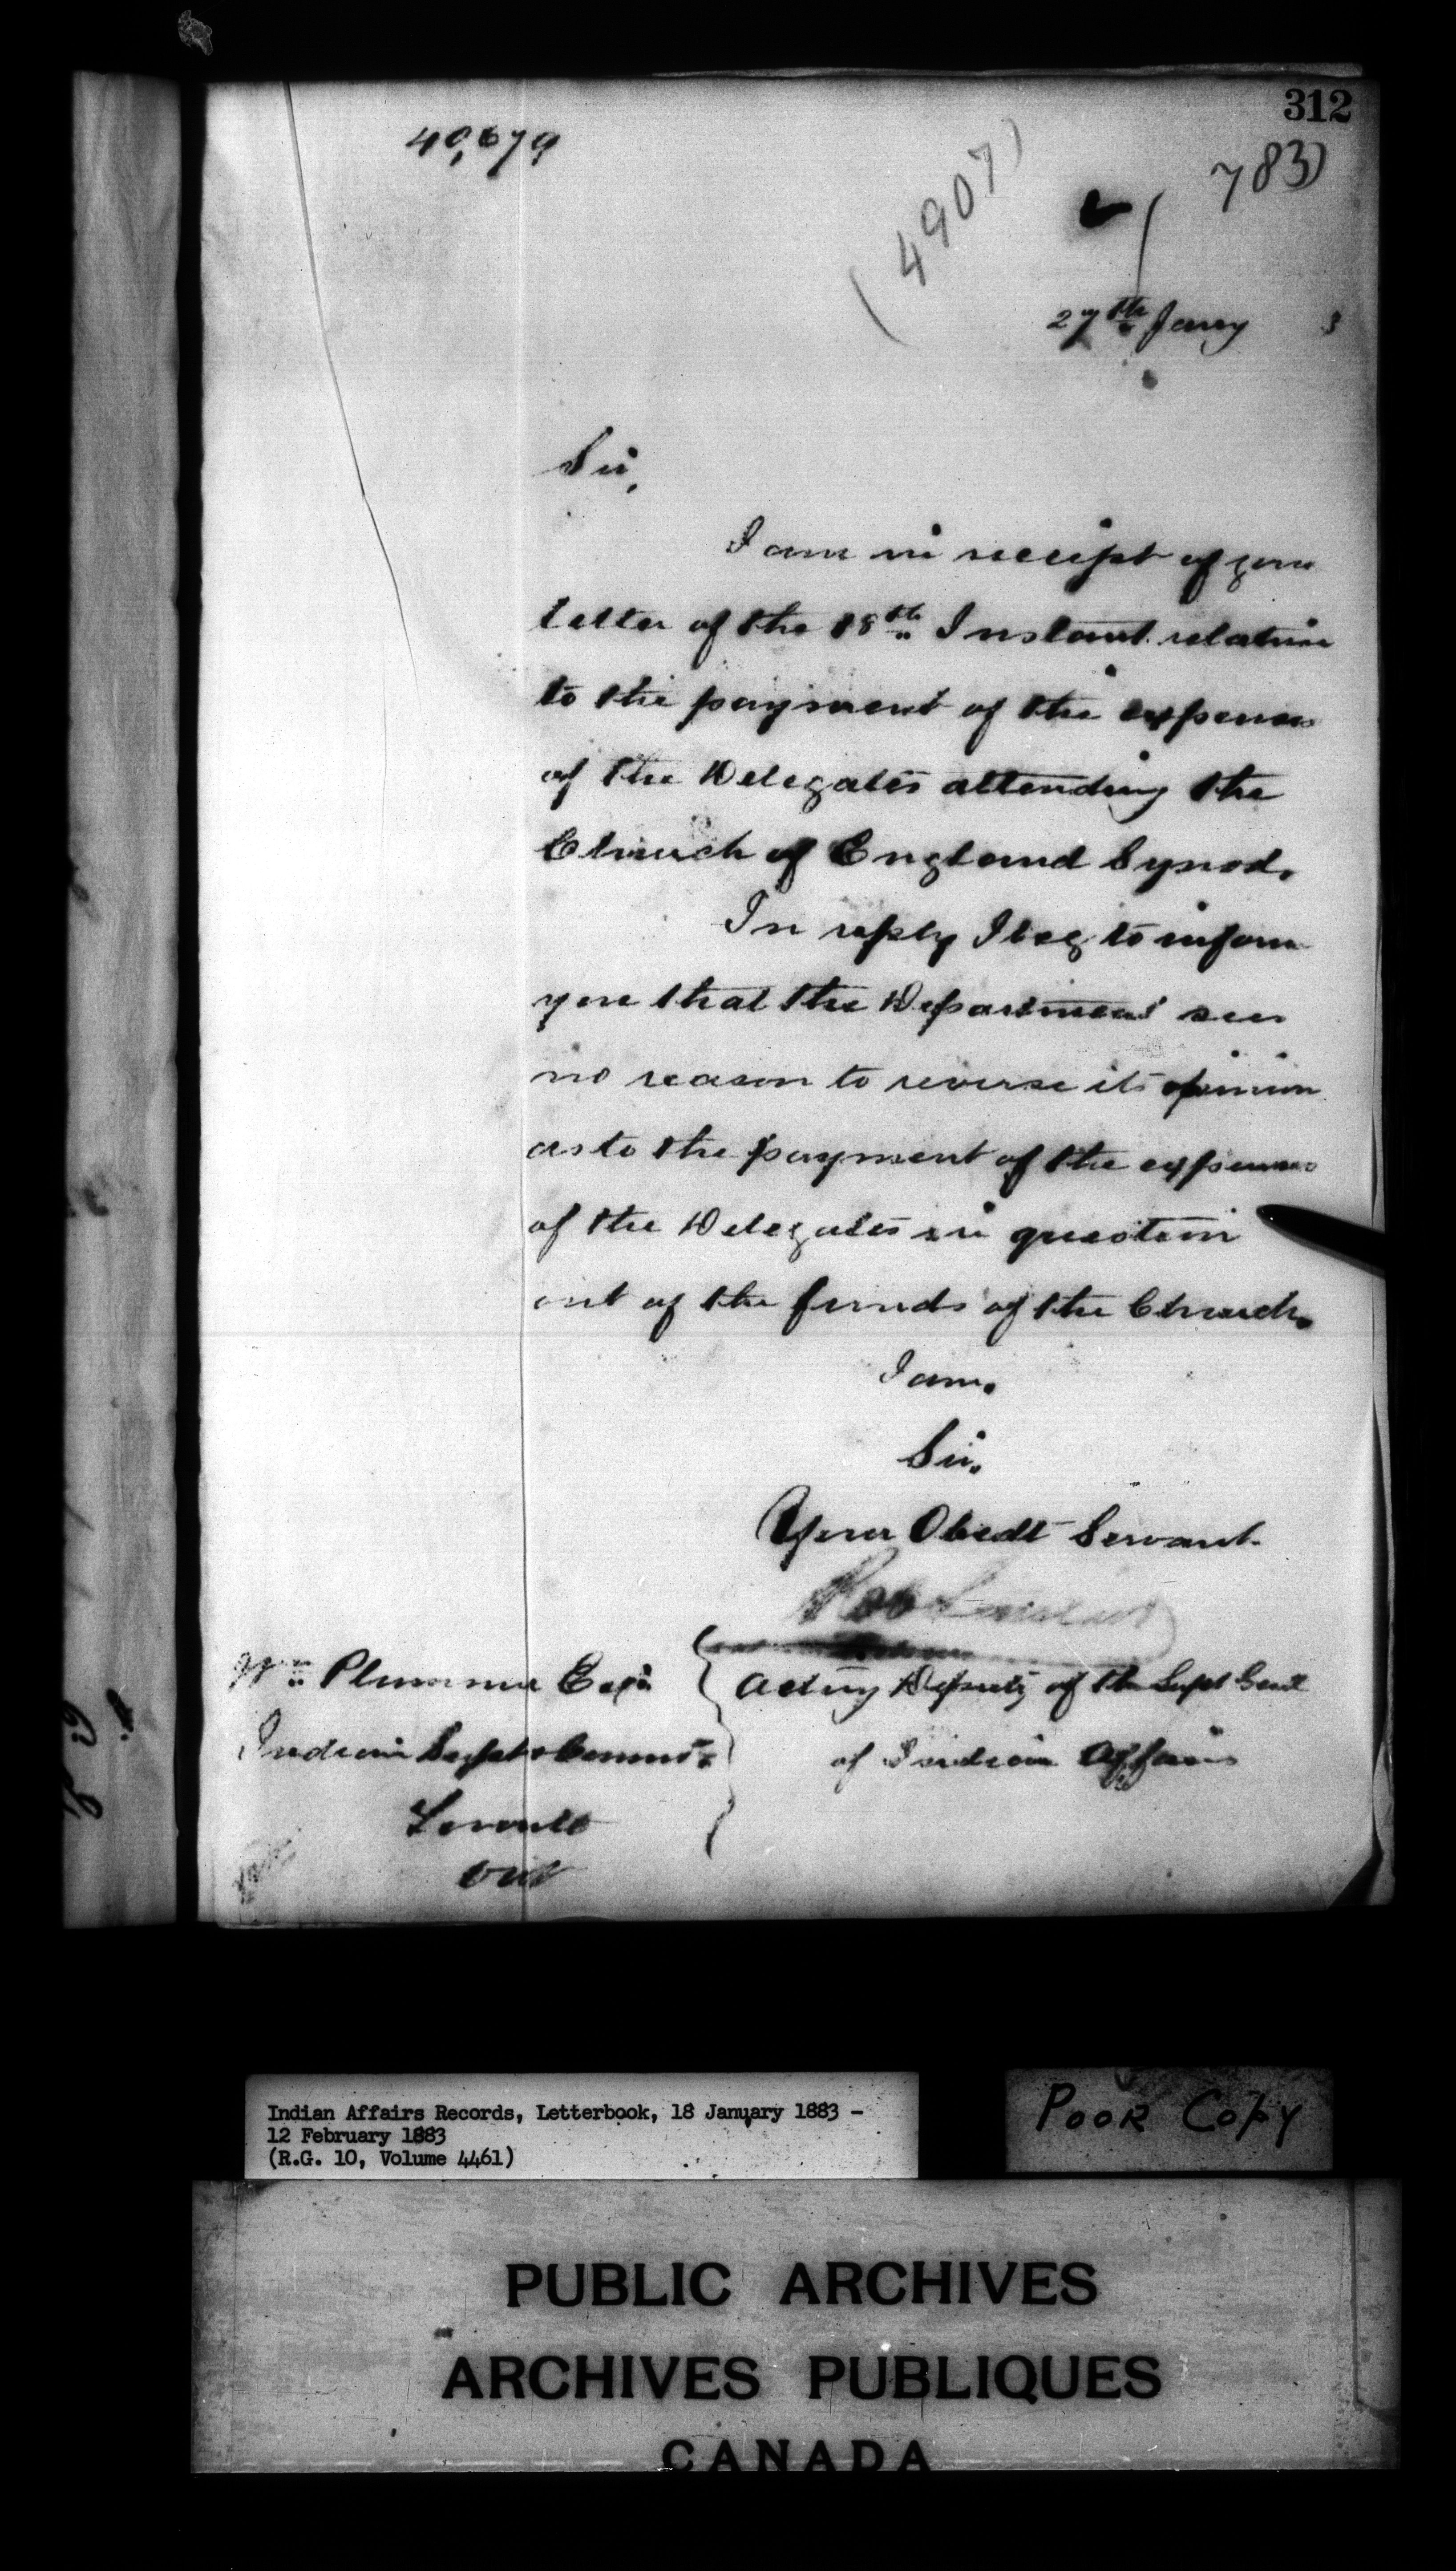 312
40,679
(4907)
783)
27th Jany 3
Sir,
I am in receipt of your
letter of the 18th Instant relative
to the payment of the expenses
of the Delegates attending the
Church of England Synod.
In reply I beg to inform
you that the Department sees
no reason to reverse its opinion
as to the payment of the expenses
of the Delegates in question
out of the funds of the Church.
I am.
Sir.
Your Obedt Servant.
Wm Plummer Esqr
Acting Deputy of the Supt Genl
Indian Supt & Commr
of Indian Affairs
Toronto
Ont
Indian Affairs Records, Letterbook, 18 January 1883 -
12 February 1883
(R.G. 10, Volume 4461)
POOR COPY
PUBLIC ARCHIVES
ARCHIVES PUBLIQUES
CANADA